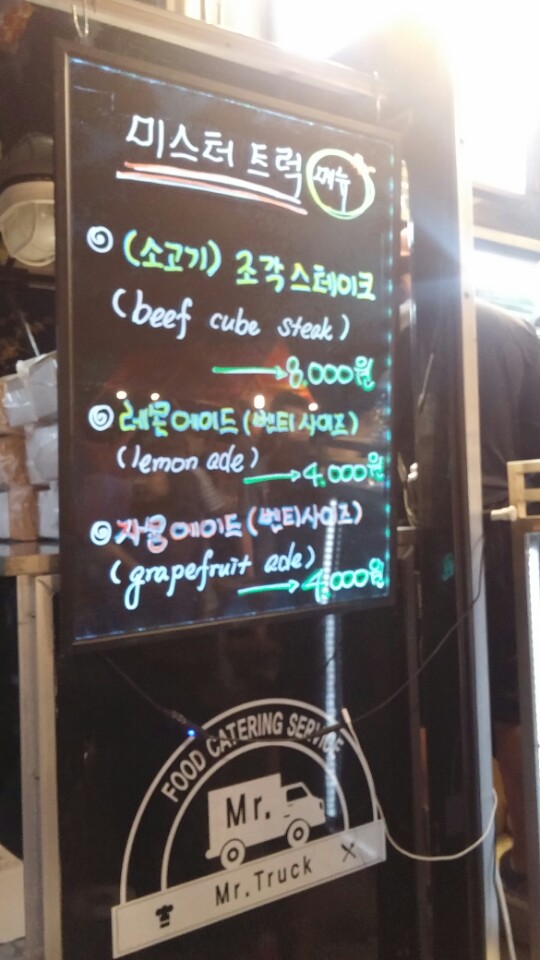 미스터 트럭 메뉴
(소고기) 조각스테이크
(beef cube steak)
→8,000원
레몬에이드 (벤티사이즈)
(lemon ade)
→4,000원
자몽에이드 (벤티사이즈)
(grapefruit ade)
→4,000원
FOOD CATERING SERVICE
Mr.
Mr.Truck